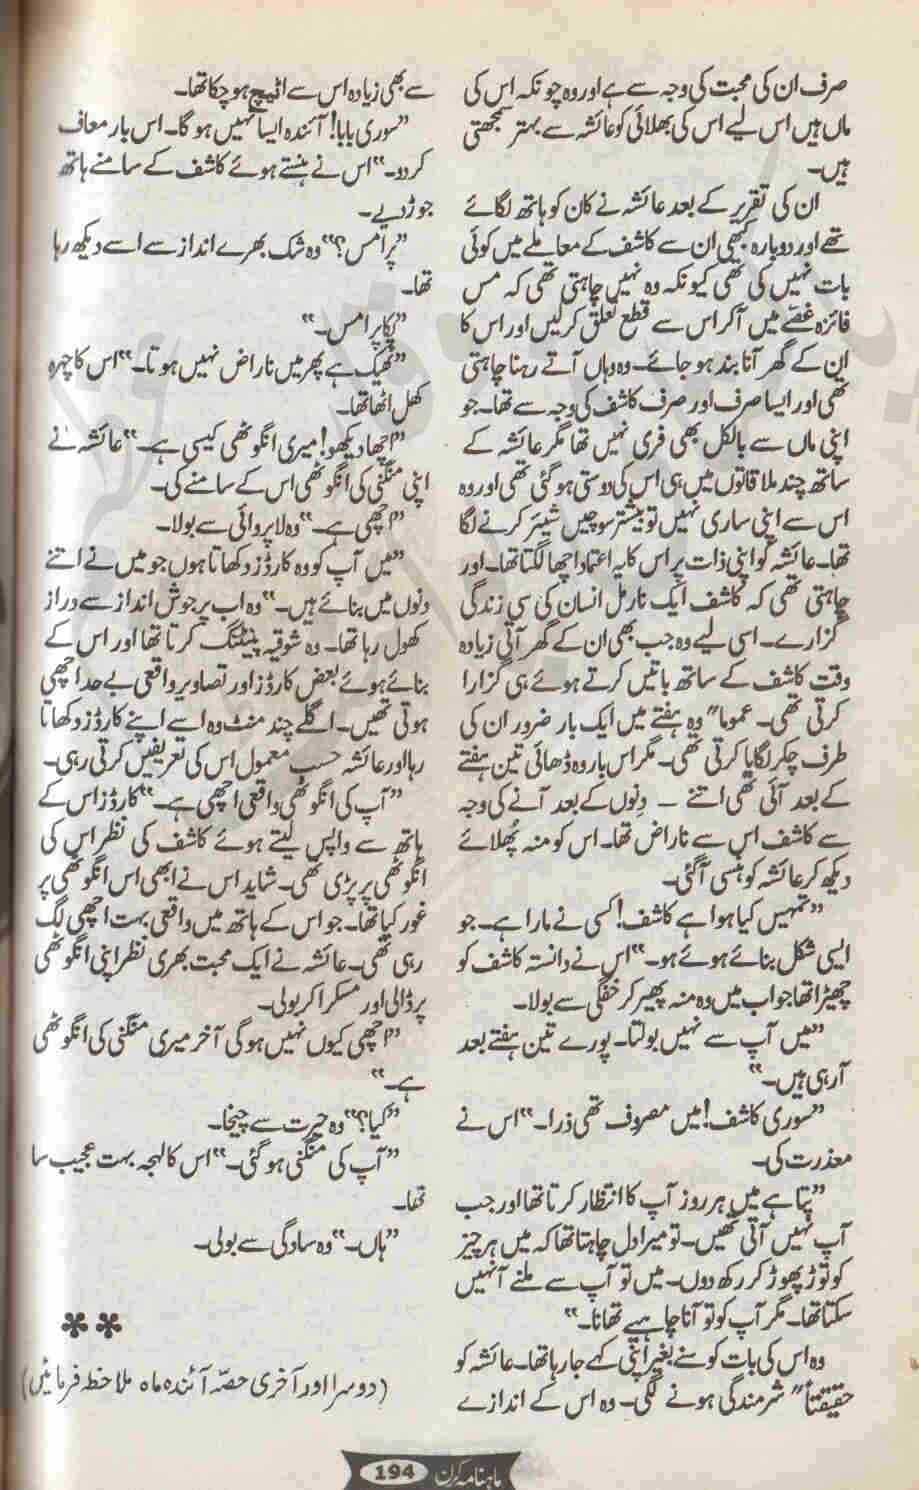 صرف ان کی محبت کی وجہ سے ہے اور وہ چونکہ اس کی
ماں ہیں اس لیے اس کی بھلائی کو عائشہ سے بہتر سمجھتی
ہیں۔
ان کی تقریر کے بعد عائشہ نے کان کو ہاتھ لگائے
تھے اور دوبارہ کبھی ان سے کاشف کے معاملے میں کوئی
بات نہیں کی تھی کیونکہ وہ نہیں چاہتی تھی کہ مس
فائزہ غصّے میں آکر اس سے قطع تعلق کرلیں اور اس کا
ان کے گھر آنا بند ہوجائے۔ وہ وہاں آتے رہنا چاہتی
تھی اور ایسا صرف اور صرف کاشف کی وجہ سے تھا۔ جو
اپنی ماں سے بالکل بھی فری نہیں تھا مگر عائشہ کے
ساتھ چند ملاقاتوں میں ہی اس کی دوستی ہوگئی تھی اور وہ
اس سے اپنی ساری نہیں تو بیشتر سوچیں شیئر کرنے لگا
تھا۔ عائشہ کو اپنی ذات پر اس کا یہ اعتماد اچھا لگتا تھا۔ اور
چاہتی تھی کہ کاشف ایک نارمل انسان کی سی زندگی
گزارے۔ اسی لیے وہ جب بھی ان کے گھر آتی زیادہ
وقت کاشف کے ساتھ باتیں کرتے ہوئے ہی گزارا
کرتی تھی۔ عموما" وہ ہفتے میں ایک بار ضرور ان کی
طرف چکر لگایا کرتی تھی۔ مگر اس بار وہ ڈھائی تین ہفتے
کے بعد آئی تھی اتنے ۔ دِنوں کے بعد آنے کی وجہ
سے کاشف اس سے ناراض تھا۔ اس کو منہ پُھلائے
دیکھ کر عائشہ کو ہنسی آگئی۔
"تمہیں کیا ہوا ہے کاشف! کسی نے مارا ہے۔ جو
ایسی شکل بنائے ہوئے ہو۔" اس نے دانستہ کاشف کو
چھیڑا تھا جواب میں وہ منہ پھیر کر خفگی سے بولا۔
"میں آپ سے نہیں بولتا۔ پورے تین ہفتے بعد
آرہی ہیں۔"
"سوری کاشف! میں مصروف تھی ذرا۔" اس نے
معذرت کی۔
"پتا ہے میں ہر روز آپ کا انتظار کرتا تھا اور جب
آپ نہیں آتی تھیں۔ تو میرا دل چاہتا تھا کہ میں ہر چیز
کو توڑ پھوڑ کر رکھ دوں۔ میں تو آپ سے ملنے آ نہیں
سکتا تھا۔ مگر آپ کو تو آنا چاہیے تھا نا۔"
وہ اس کی بات کو سنے بغیر اپنی کہے جارہا تھا۔ عائشہ کو
حقیقتاً" شرمندگی ہونے لگی۔ وہ اس کے اندازے
سے بھی زیادہ اس سے اٹیچ ہوچکا تھا۔
"سوری بابا! آئندہ ایسا نہیں ہوگا۔ اس بار معاف
کردو۔" اس نے ہنستے ہوئے کاشف کے سامنے ہاتھ
جوڑ دیے۔
"پرامس؟" وہ شک بھرے انداز سے اسے دیکھ رہا
تھا۔
"پکا پرامس۔"
"ٹھیک ہے پھر میں ناراض نہیں ہوتا۔" اس کا چہرہ
کھل اٹھا تھا۔
"اچھا دیکھو! میری انگوٹھی کیسی ہے۔" عائشہ نے
اپنی منگنی کی انگوٹھی اس کے سامنے کی۔
"اچھی ہے۔" وہ لاپروائی سے بولا۔
"میں آپ کو وہ کارڈز دکھاتا ہوں جو میں نے اتنے
دنوں میں بنائے ہیں۔" وہ اب پرجوش انداز سے دراز
کھول رہا تھا۔ وہ شوقیہ پینٹنگ کرتا تھا اور اس کے
بنائے ہوئے بعض کارڈز اور تصاویر واقعی بے حد اچھی
ہوتی تھیں۔ اگلے چند منٹ وہ اسے اپنے کارڈز دکھاتا
رہا اور عائشہ حسب معمول اس کی تعریفیں کرتی رہی۔
"آپ کی انگوٹھی واقعی اچھی ہے۔" کارڈز اس کے
ہاتھ سے واپس لیتے ہوئے کاشف کی نظر اس کی
انگوٹھی پر پڑی تھی۔ شاید اس نے ابھی اس انگوٹھی پر
غور کیا تھا۔ جو اس کے ہاتھ میں واقعی بہت اچھی لگ
رہی تھی۔ عائشہ نے ایک محبت بھری نظر اپنی انگوٹھی
پر ڈالی اور مسکرا کر بولی۔
"اچھی کیوں نہیں ہوگی آخر میری منگنی کی انگوٹھی
ہے۔"
"کیا؟" وہ حیرت سے چیخا۔
"آپ کی منگنی ہوگئی۔" اس کا لہجہ بہت عجیب سا
تھا۔
"ہاں۔" وہ سادگی سے بولی۔
✻✻
(دوسرا اور آخری حصّہ آئندہ ماہ ملاحظہ فرمائیں)
ماہنامہ کرن 194